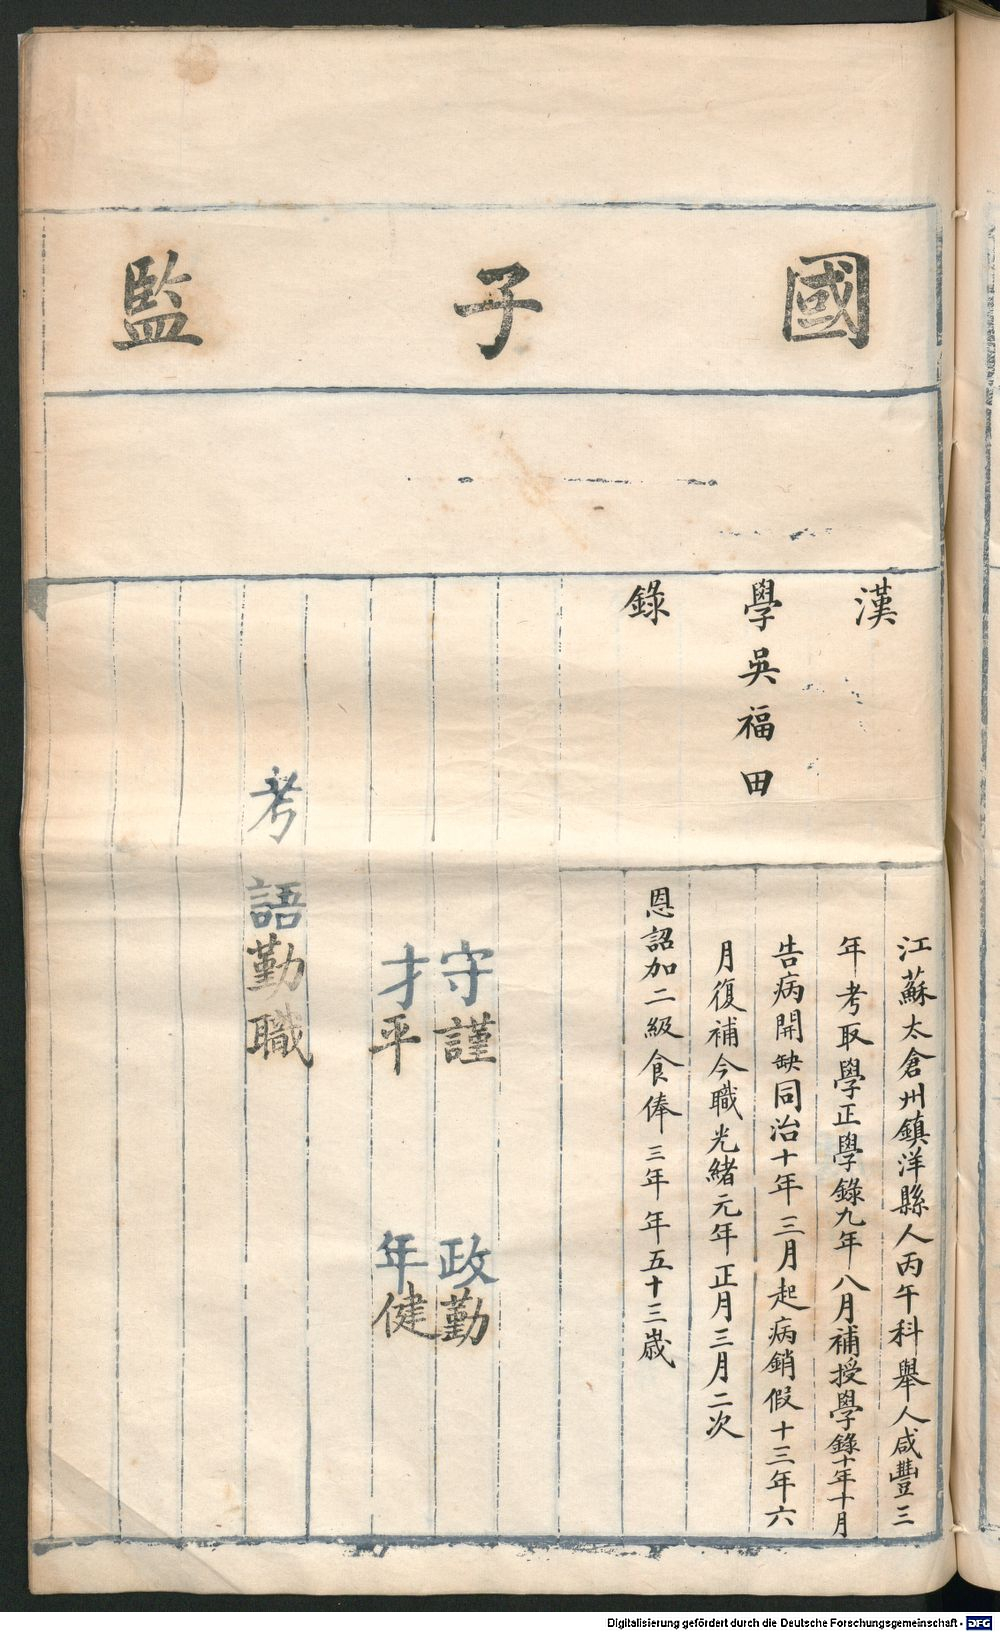 國子監
漢學錄
吳福田
江蘇太倉州鎮洋縣人丙午科舉人咸豐三
年考取學正學錄九年八月補授學錄十年十月
告病開缺同治十年三月起病銷假十三年六
月復補今職光緒元年正月三月二次
恩詔加二級食俸三年年五十三歲
守謹 政勤
才平 年健
考語勤職
Digitalisierung gefördert durch die Deutsche Forschungsgemeinschaft - DFG